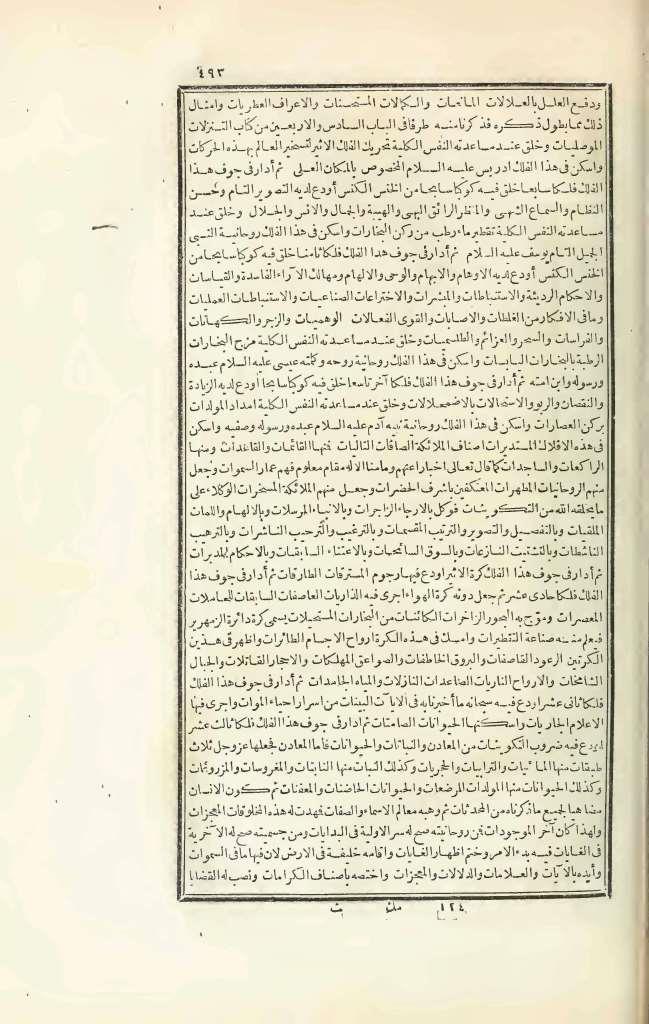 ٤٩٣
ودفع العلل بالعلالات المانحات والكمالات المستحسنات والاعراف العطريات وامثال
ذلك مما يطول ذكره فذكرنا منه طرفا فى الباب السادس والاربعين من كتاب التنزلات
الموصليات وخلق عند مساعدته النفس الكلية تحريك الفلك الاثير لتسخير العالم بهذه الحركات
واسكن فى هذا الفلك ادريس عليه السلام المخصوص بالمكان العلى ثم أدار فى جوف هذا
الفلك فلكا سابعا خلق فيه كوكبا سابحا من الخنس الكنس أودع لديه التصوير التام وحسن
النظام والسماع الشهى والمنظر الرائق البهى والهيبة والجمال والانس والجلال وخلق عند
مساعدته النفس الكلية تقطير ماء رطب من ركن البخارات واسكن فى هذا الفلك روحانية النبى
الجميل التام يوسف عليه السلام ثم أدار فى جوف هذا الفلك فلكا ثامنا خلق فيه كوكبا سابحا من
الخنس الكنس أودع لديه الاوهام والايهام والوحى والالهام ومهالك الآراء الفاسدة والقياسات
والاحكام الرديئة والاستنباطات والمبشرات والاختراعات الصناعيات والاستنباطات العمليات
وما فى الافكار من الغلطات والاصابات والقوى الفعالات الوهميات والزجر والكهانات
والفراسات والسحر والعزائم والطلسميات وخلق عند مساعدته النفس الكلية مزج البخارات
الرطبة بالبخارات اليابسات واسكن فى هذا الفلك روحانية روحه وكلمته عيسى عليه السلام عبده
ورسوله وابن امته ثم أدار فى جوف هذا الفلك فلكا آخر تاسعا خلق فيه كوكبا سابحا أودع لديه الزيادة
والنقصان والربو والاستحالات بالاضمحلالات وخلق عند مساعدته النفس الكلية امداد المولدات
بركن العصارات واسكن فى هذا الفلك روحانية نبيه آدم عليه السلام عبده ورسوله وصفيه واسكن
فى هذه الافلاك المستديرات اصناف الملائكة الصافات التاليات فمنها القائمات والقاعدات ومنها
الراكعات والساجدات كما قال تعالى اخبارا عنهم وما منا الا له مقام معلوم فهم عمار السموات وجعل
منهم الروحانيات المطهرات المعتكفين باشرف الحضرات وجعل منهم الملائكة المسخرات الوكلاء على
ما يخلقه الله من التكوينات فوكل بالارجاء الزاجرات وبالانباء المرسلات وبالالهام واللمات
الملقيات وبالتفصيل والتصوير والترتيب المقسمات وبالترغيب والترحيب الناشرات وبالترهيب
الناشطات وبالتشتيت النازعات وبالسوق السابحات وبالاعتناء السابقات وبالاحكام المدبرات
ثم أدار فى جوف هذا الفلك كرة الاثير اودع فيها رجوم المسترقات الطارقات ثم أدار فى جوف هذا
الفلك فلكا حادى عشر ثم جعل دونه كرة الهواء اجرى فيه الذاريات العاصفات السابقات للحاملات
المعصرات وموّج به البحور الزاخرات الكائنات من البخارات المستحيلات يسمى كرة دائرة الزمهرير
فيعلم منه صناعة التقطيرات وامسك فى هذه الكرة ارواح الاجسام الطائرات واظهر فى هذين
الكرتين الرعود القاصفات والبروق الخاطفات والصواعق المهلكات والاحجار القاتلات والجبال
الشامخات والارواح الناريات الصاعدات النازلات والمياه الجامدات ثم أدار فى جوف هذا الفلك
فلكا ثانى عشر اودع فيه سبحانه ما أخبرنا به فى الآيات البينات من اسرار احياء الموات واجرى فيها
الاعلام الجاريات واسكنها الحيوانات الصامتات ثم ادار فى جوف هذا الفلك فلكا ثالث عشر
اودع فيه ضروب التكوينات من المعادن والنباتات والحيوانات فأما المعادن فجعلها عز وجل ثلاث
طبقات منها المائيات والترابيات والحجريات وكذلك النبات منها النابتات والمغروسات والمزروعات
وكذلك الحيوانات منها المولدات المرضعات والحيوانات الحاضنات والمعفنات ثم كون الانسان
مضاهيا لجميع ما ذكرناه من المحدثات ثم وهبه معالم الاسماء والصفات فمهدت له هذه المخلوقات المعجزات
ولهذا كان آخر الموجودات فمن روحانيته صح له سر الاولية فى البدايات ومن جسميته صح له الآخرية
فى الغايات فيه بدء الامر وختم اظهار الغايات واقامه خليفة فى الارض لان فيها ما فى السموات
وأيده بالآيات والعلامات والدلالات والمعجزات واختصه باصناف الكرامات ونصب له القضايا
١٢٤ ملت ث